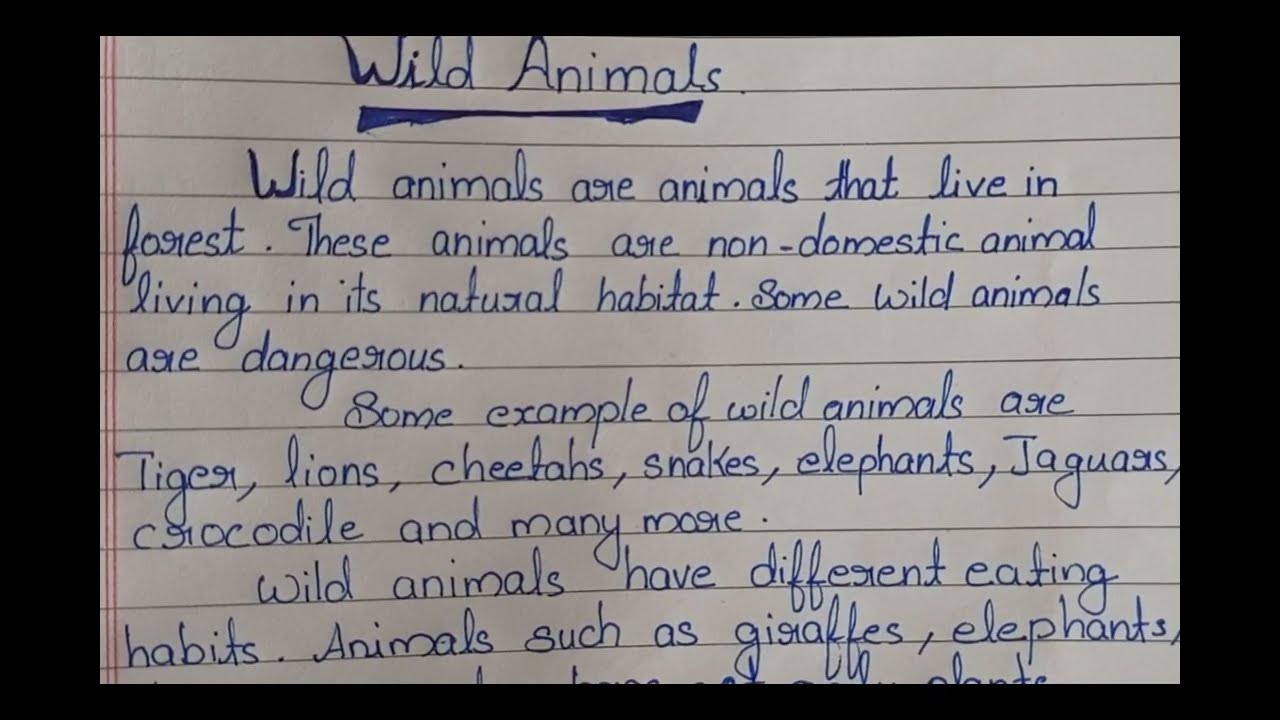 Wild Animals.
Wild animals are animals that live in
forest. These animals are non-domestic animal
living in its natural habitat. Some wild animals
are dangerous.
Some example of wild animals are
Tiger, lions, cheetahs, snakes, elephants, Jaguars,
crocodile and many more.
Wild animals have different eating
habits. Animals such as giraffes, elephants,
plants